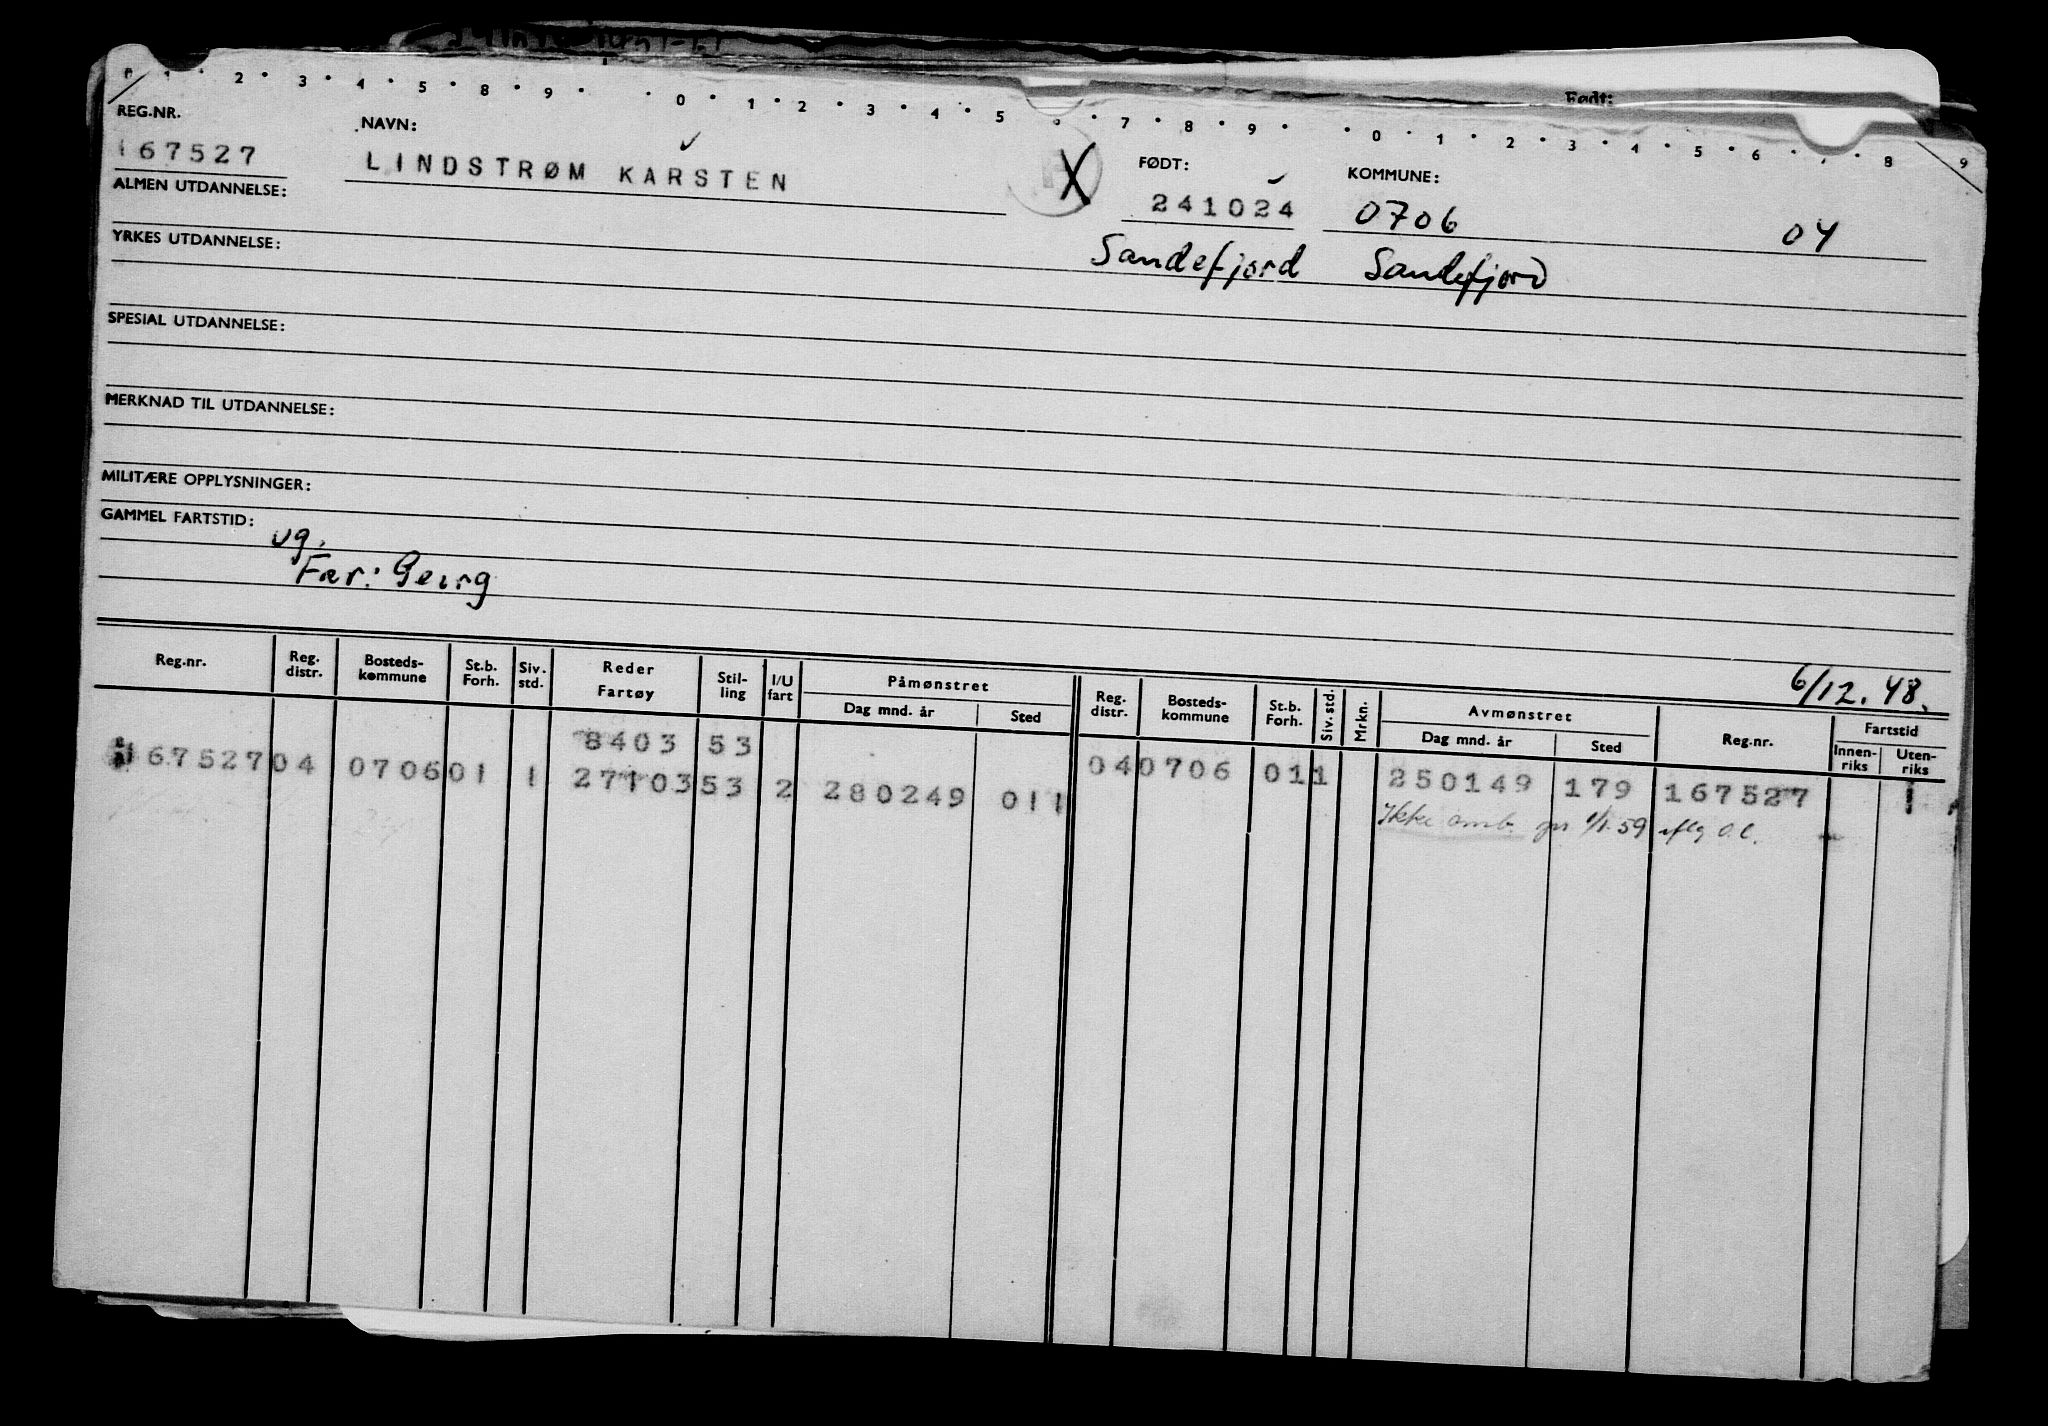 0 1 · 2 · 3 · 4 · 5 · 8 · 9 · · 0 · 1 · 2 · 3 · 4 · 5 · 7 · 8 · 9 · · 0 · 1 · 2 · 3 · 4 · 5 · 6 · · 8 9
Født:
REG.NR. NAVN: FØDT: KOMMUNE:
167527 LINDSTRØM KARSTEN X 241024 0706 04
ALMEN UTDANNELSE:
Sandefjord Sandefjord
YRKES UTDANNELSE:
SPESIAL UTDANNELSE:
MERKNAD TIL UTDANNELSE:
MILITÆRE OPPLYSNINGER:
GAMMEL FARTSTID:
ug.
Far: Georg
6/12.48.
Reg.nr. Reg. distr. Bosteds-kommune St.b. Forh. Siv. std. Reder Fartøy Stil-ling I/U fart Påmønstret Dag mnd. år Sted Reg. distr. Bosteds-kommune St.b. Forh. Siv. std. Mrkn. Avmønstret Dag mnd. år Sted Reg.nr. Fartstid Innen-riks Uten-riks
8403 53
167527 04 0706 01 1 27103 53 2 280249 011 04 0706 01 1 250149 179 167527 1
Ikke omb. pr 1/1.59 iflg